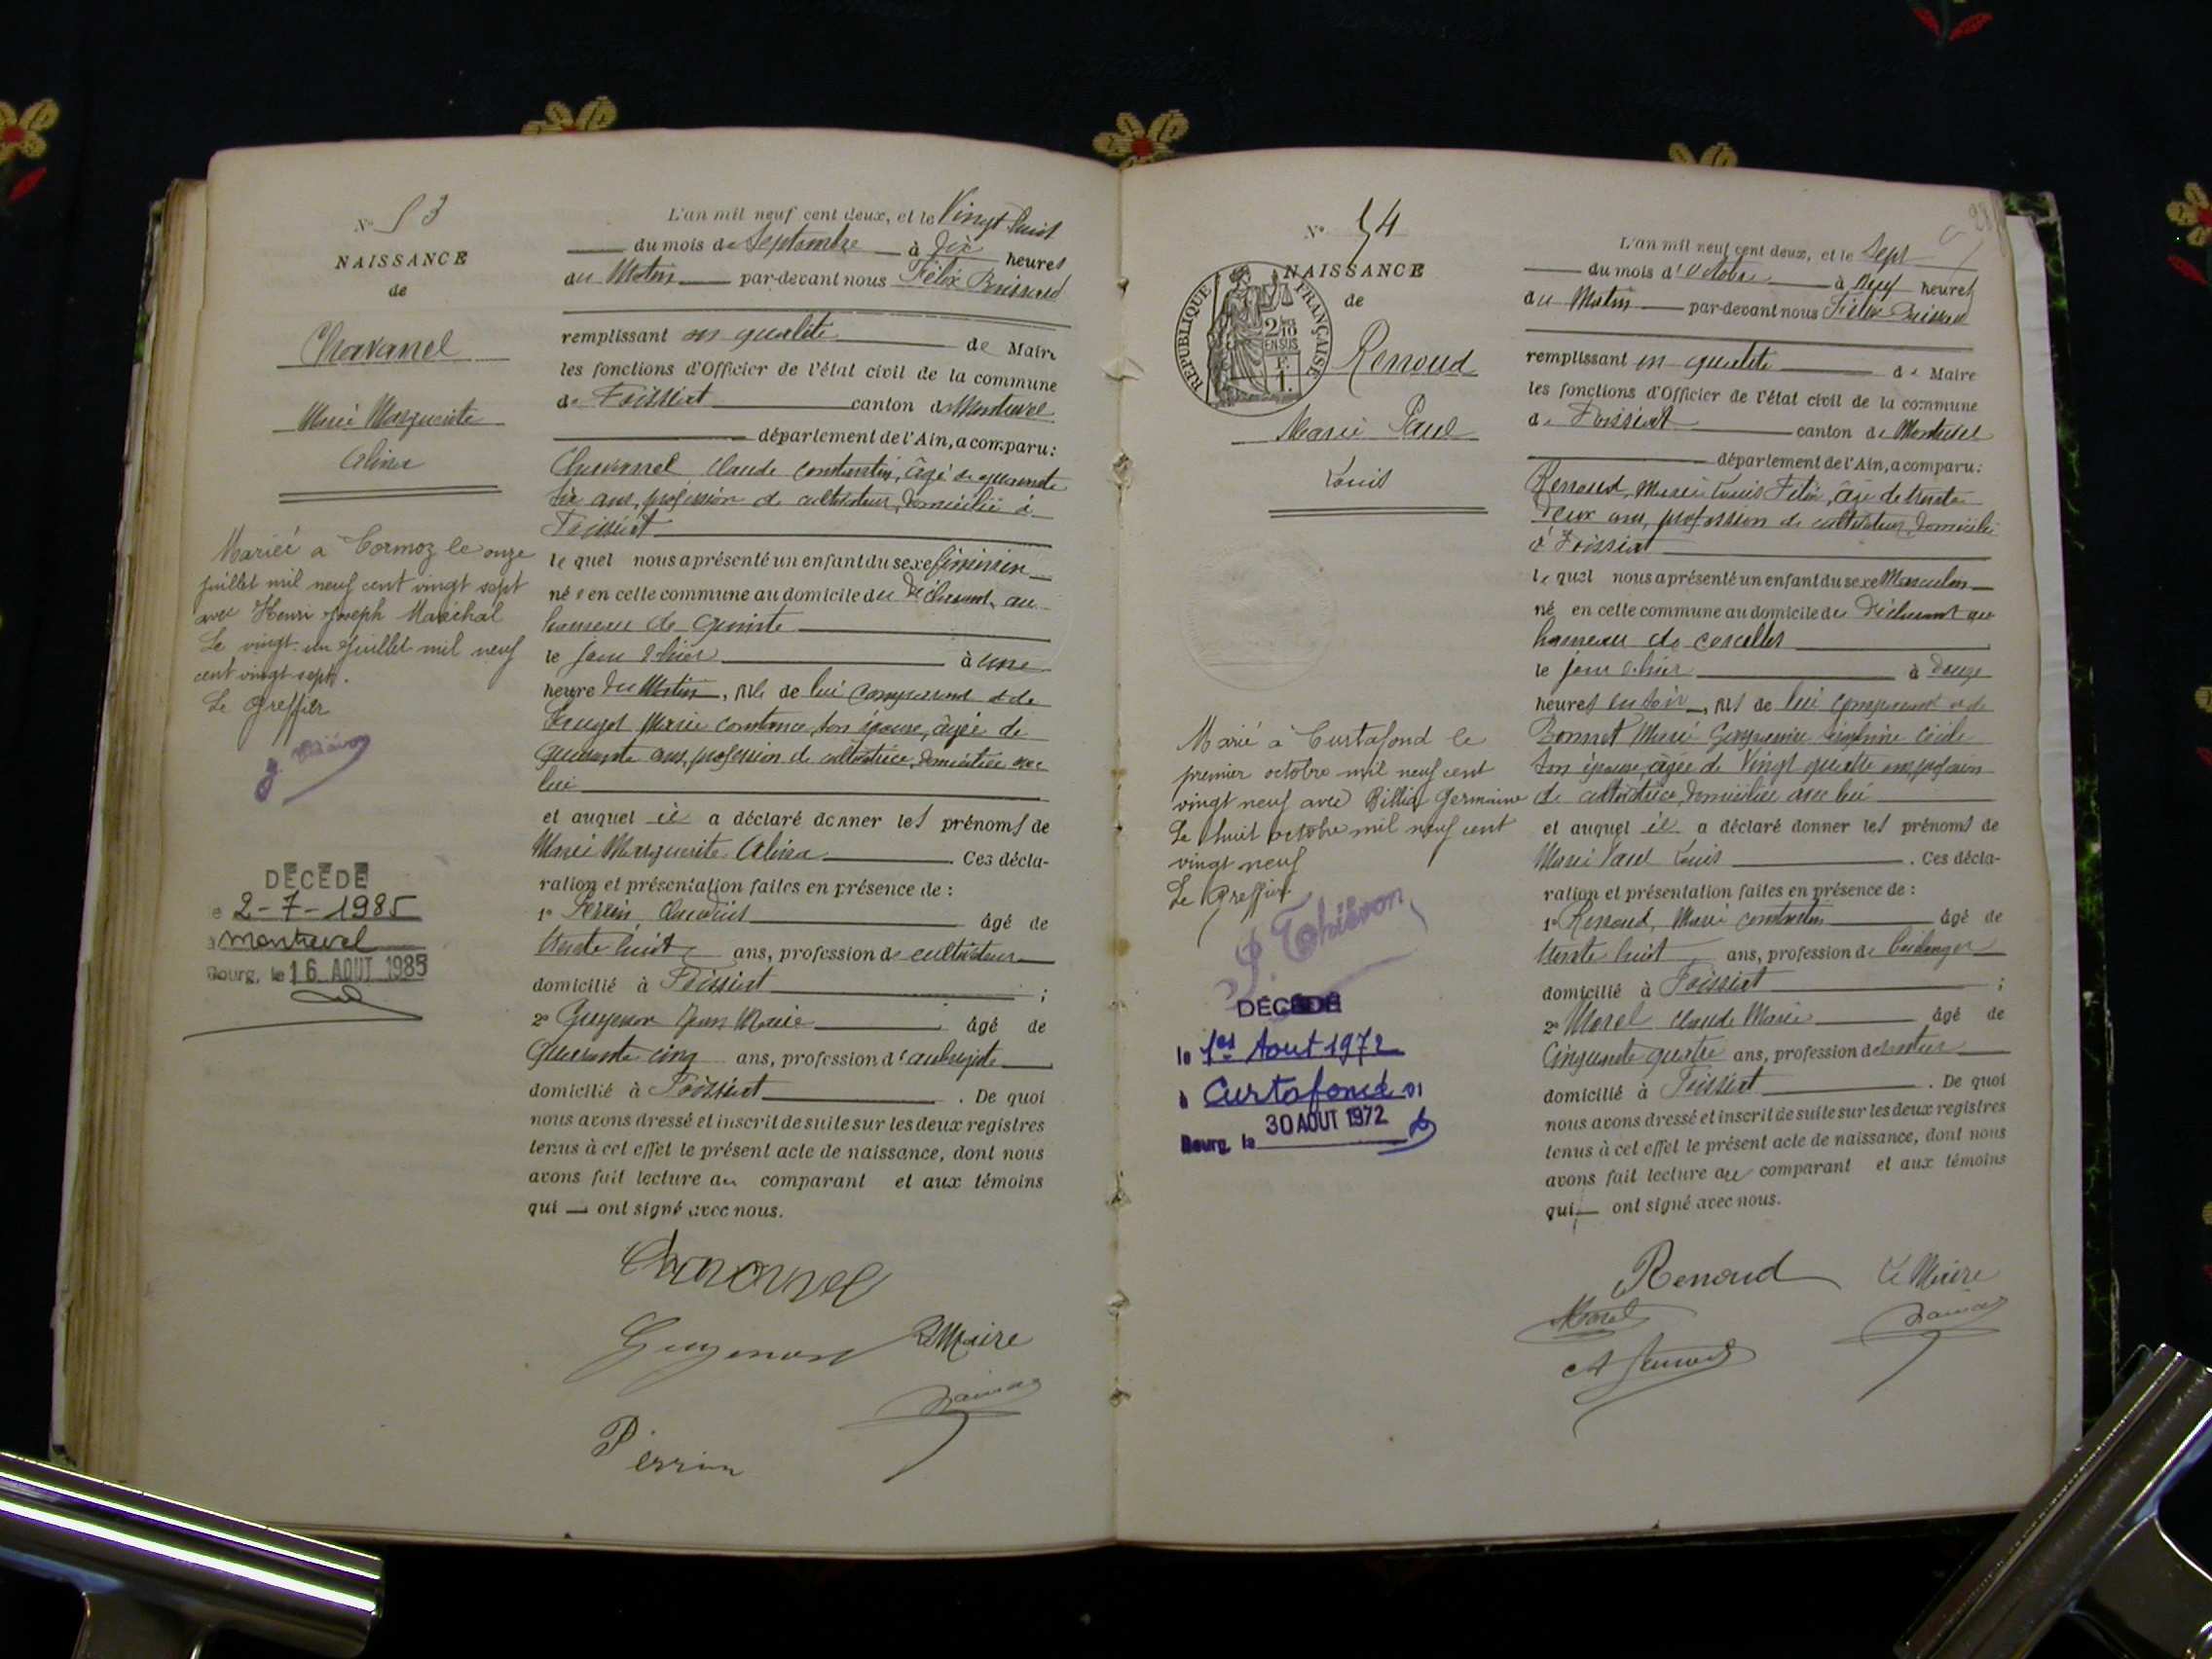 N° 53
NAISSANCE
de
Chavanel
Marie Marguerite
Alina
Mariée à Cormoz le onze
juillet mil neuf cent vingt sept
avec Henri Joseph Maréchal
Le vingt un juillet mil neuf
cent vingt sept.
Le Greffier
DÉCÉDÉ
le 2-7-1985
à montrevel
Bourg, le 16 AOUT 1985
L'an mil neuf cent deux, et le Vingt huit
du mois de Septembre à dix heures
du Matin par-devant nous Félix
remplissant en qualité de Maire
les fonctions d'Officier de l'état civil de la commune
de Foissiat canton de Montrevel
département de l'Ain, a comparu:
Chavanel Claude Constantin, âgé de quarante
six ans, profession de cultivateur, domicilié à
Foissiat
le quel nous a présenté un enfant du sexe féminin
née en cette commune au domicile du déclarant, au
hameau de
le jour d'hier à une
heure du Matin, fille de lui comparant et de
Marie Constance, son épouse, âgée de
quarante ans, profession de cultivatrice, domiciliée avec
lui
et auquel il a déclaré donner les prénoms de
Marie Marguerite Alina Ces décla-
ration et présentation faites en présence de :
1° Perrin Claudius âgé de
trente huit ans, profession de cultivateur
domicilié à Foissiat ;
2° Guyenon Jean Marie âgé de
Quarante cinq ans, profession d'aubergiste
domicilié à Foissiat . De quoi
nous avons dressé et inscrit de suite sur les deux registres
tenus à cet effet le présent acte de naissance, dont nous
avons fait lecture au comparant et aux témoins
qui ont signé avec nous.
Chavanel
Guyenon Le Maire
Perrin
N° 54
NAISSANCE
de
REPUBLIQUE FRANÇAISE
2/10
EN SUS
F.
1.
Renoud
Marie Paul
Louis
Marié à Curtafond le
premier octobre mil neuf cent
vingt neuf avec Billia Germaine
Le huit octobre mil neuf cent
vingt neuf
Le Greffier
J. Thiévon
DÉCÉDÉ
le 1er Aout 1972
à Curtafond 01
Bourg, le 30 AOUT 1972
L'an mil neuf cent deux, et le Sept
du mois d'Octobre à neuf heures
du Matin par-devant nous Félix
remplissant en qualité de Maire
les fonctions d'Officier de l'état civil de la commune
de Foissiat canton de Montrevel
département de l'Ain, a comparu:
Renoud, Marie Louis Félix, âgé de trente
deux ans, profession de cultivateur, domicilié
à Foissiat
le quel nous a présenté un enfant du sexe Masculin
né en cette commune au domicile du déclarant au
hameau de
le jour d'hier à douze
heures du soir, fils de lui comparant et de
Bonnet Marie Joséphine Cécile
son épouse, âgée de Vingt quatre ans, profession
de cultivatrice, domiciliée avec lui
et auquel il a déclaré donner les prénoms de
Marie Paul Louis . Ces décla-
ration et présentation faites en présence de :
1° Renoud, Marie Constantin âgé de
trente huit ans, profession de boulanger
domicilié à Foissiat ;
2° Morel Claude Marie âgé de
Cinquante quatre ans, profession de
domicilié à Foissiat . De quoi
nous avons dressé et inscrit de suite sur les deux registres
tenus à cet effet le présent acte de naissance, dont nous
avons fait lecture au comparant et aux témoins
qui ont signé avec nous.
Renoud Le Maire
Morel